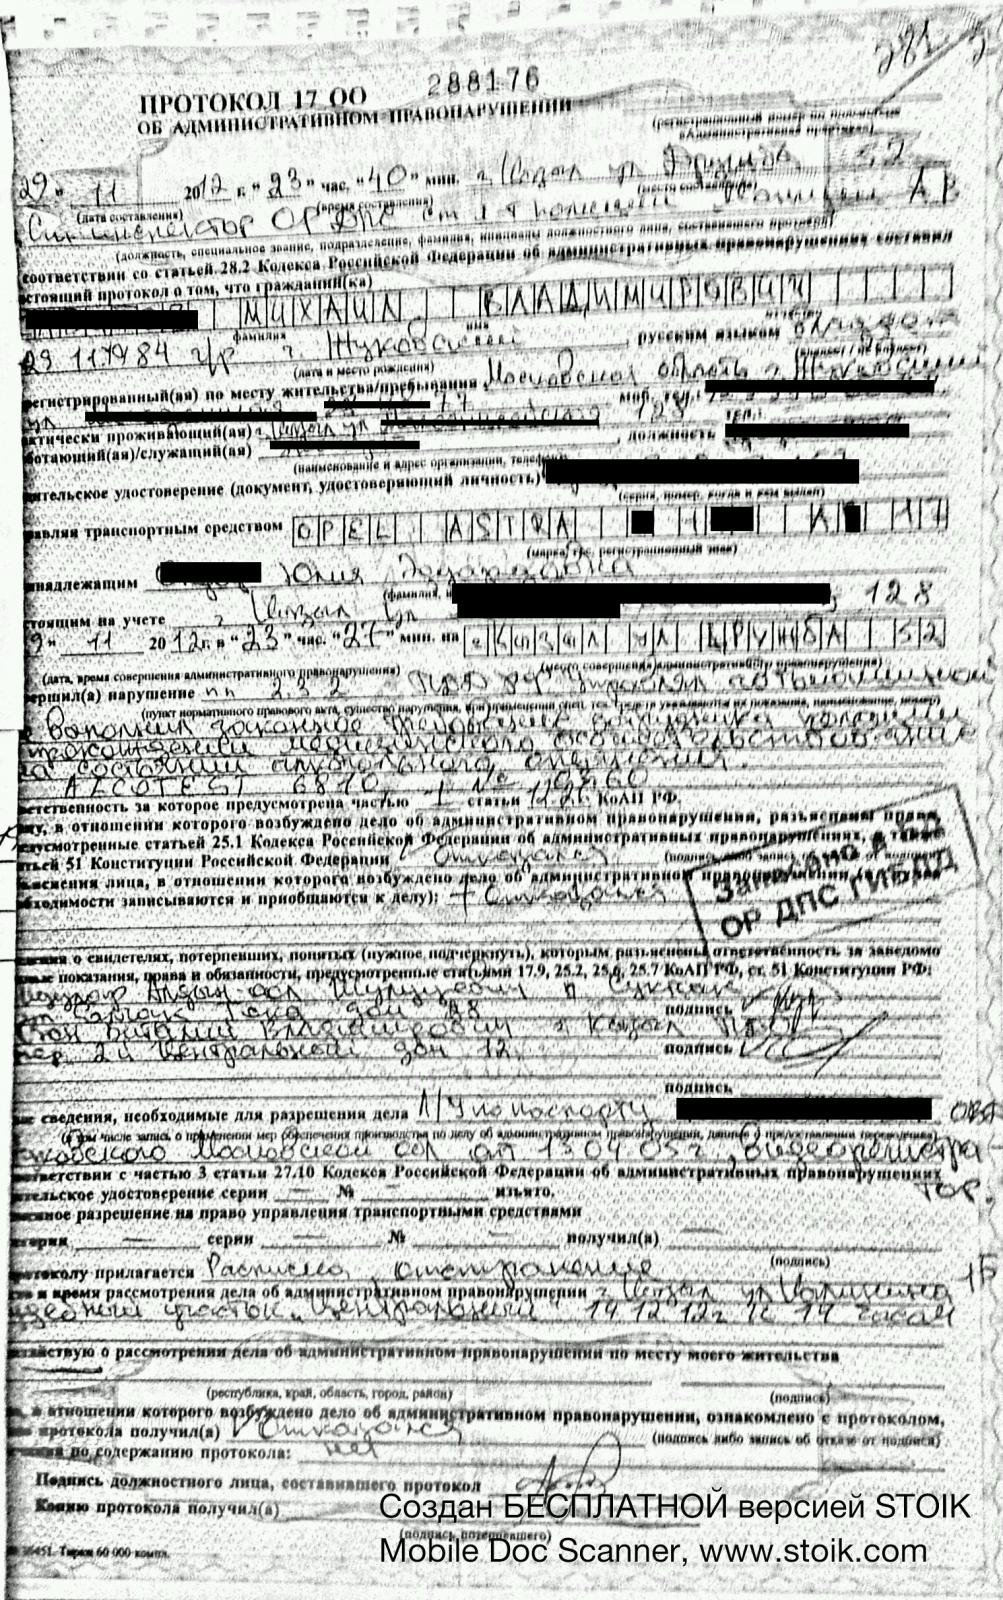 281
288176
ПРОТОКОЛ 17 ОО
ОБ АДМИНИСТРАТИВНОМ ПРАВОНАРУШЕНИИ
(регистрационный номер
29 " 11 2012 г. " 23 " час. "40" мин. г Кызыл ул Дружба 52
(дата составления) (время составления) (место составления)
Ст инспектор ОР ДПС ст л-т полиции А В
(должность, специальное звание, подразделение, фамилия, инициалы должностного лица, составившего протокол)
соответствии со статьей 28.2 Кодекса Российской Федерации об административных правонарушениях составил
стоящий протокол о том, что гражданин(ка)
МИХАИЛ ВЛАДИМИРОВИЧ
фамилия имя отчество
г/р г. Жуковский , русским языком владеет
(дата и место рождения)
регистрированный(ая) по месту жительства/пребывания Московская область г Жуковский
ул 77 моб. тел.:
ктически проживающий(ая) г Кызыл ул 128 тел.:
ботающий(ая)/служащий(ая) , должность
(наименование и адрес организации, телефон
ительское удостоверение (документ, удостоверяющий личность)
(серия, номер, когда и кем выдан)
авляя транспортным средством OPEL ASTRA 17
(марка, гос. регистрационный знак)
надлежащим Юлия Эдуардовна
(фамилия, и
стоящим на учете г Кызыл ул , 128
9 " 11 2012г. в "23" час. "27" мин. на г Кызыл ул ДРУЖБА 52
(дата, время совершения административного правонарушения) (место совершения административного правонарушения)
ершил(а) нарушение пп 2.3.2 ПДД РФ Управлял автомашиной
(пункт нормативного правового акта, существо нарушения, при применении спец. тех. средств указываются их показания, наименование, номер)
выполнил законное требование сотрудника полиции
прохождении медицинского освидетельствования
на состоянии алкогольного опьянения.
ALCOTEST 6810, №
етственность за которое предусмотрена частью 1 статьи 12.26 КоАП РФ.
цу, в отношении которого возбуждено дело об административном правонарушении, разъяснены права,
дусмотренные статьей 25.1 Кодекса Российской Федерации об административных правонарушениях, а также
тьей 51 Конституции Российской Федерации отказался
яснения лица, в отношении которого возбуждено дело об административном правонарушении
бходимости записываются и приобщаются к делу): отказался
ОР ДПС ГИБДД
ения о свидетелях, потерпевших, понятых (нужное подчеркнуть), которым разъяснены ответственность за заведомо
ные показания, права и обязанности, предусмотренные статьями 17.9, 25.2, 25.6, 25.7 КоАП РФ, ст. 51 Конституции РФ:
подпись
дом 48
Виталий Владимирович г Кызыл
пер. 2й Центральный дом 12 подпись
подпись
ые сведения, необходимые для разрешения дела Л/У по паспорту ОВД
(в том числе запись о применении мер обеспечения производства по делу об административном правонарушении, данные о предоставлении переводчика)
Жуковского Московской обл от 13 04 05г, Видеорегистра-
тор.
ответствии с частью 3 статьи 27.10 Кодекса Российской Федерации об административных правонарушениях
ительское удостоверение серии — № — изъято.
енное разрешение на право управления транспортными средствами
егории — серии — № — получил(а) —
(подпись)
отоколу прилагается Расписка, отстранение
то и время рассмотрения дела об административном правонарушении г Кызыл ул Калинина 1Б
удебный участок Центральный 14.12.12г к 14 часам
атайствую о рассмотрении дела об административном правонарушении по месту моего жительства
(республика, край, область, город, район) (подпись)
в отношении которого возбуждено дело об административном правонарушении, ознакомлено с протоколом,
протокола получил(а) отказался
(подпись либо запись об отказе от подписи)
по содержанию протокола: нет
Подпись должностного лица, составившего протокол
Копию протокола получил(а)
(подпись потерпевшего)
Тираж 60 000 компл.
Создан БЕСПЛАТНОЙ версией STOIK
Mobile Doc Scanner, www.stoik.com